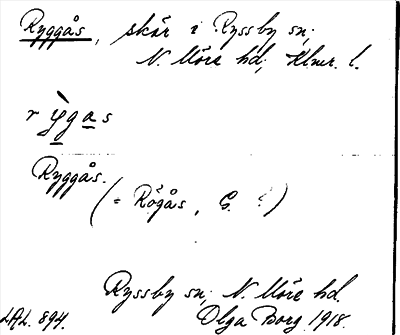 Ryggås, skär i Ryssby sn;
N. Möre hd; Klmr. l.
r ỳ̱g a̱ s
Ryggås.
(= Rögås, G. ?)
Ryssby sn, N. Möre hd.
LAL. 894. Olga Borg 1918.